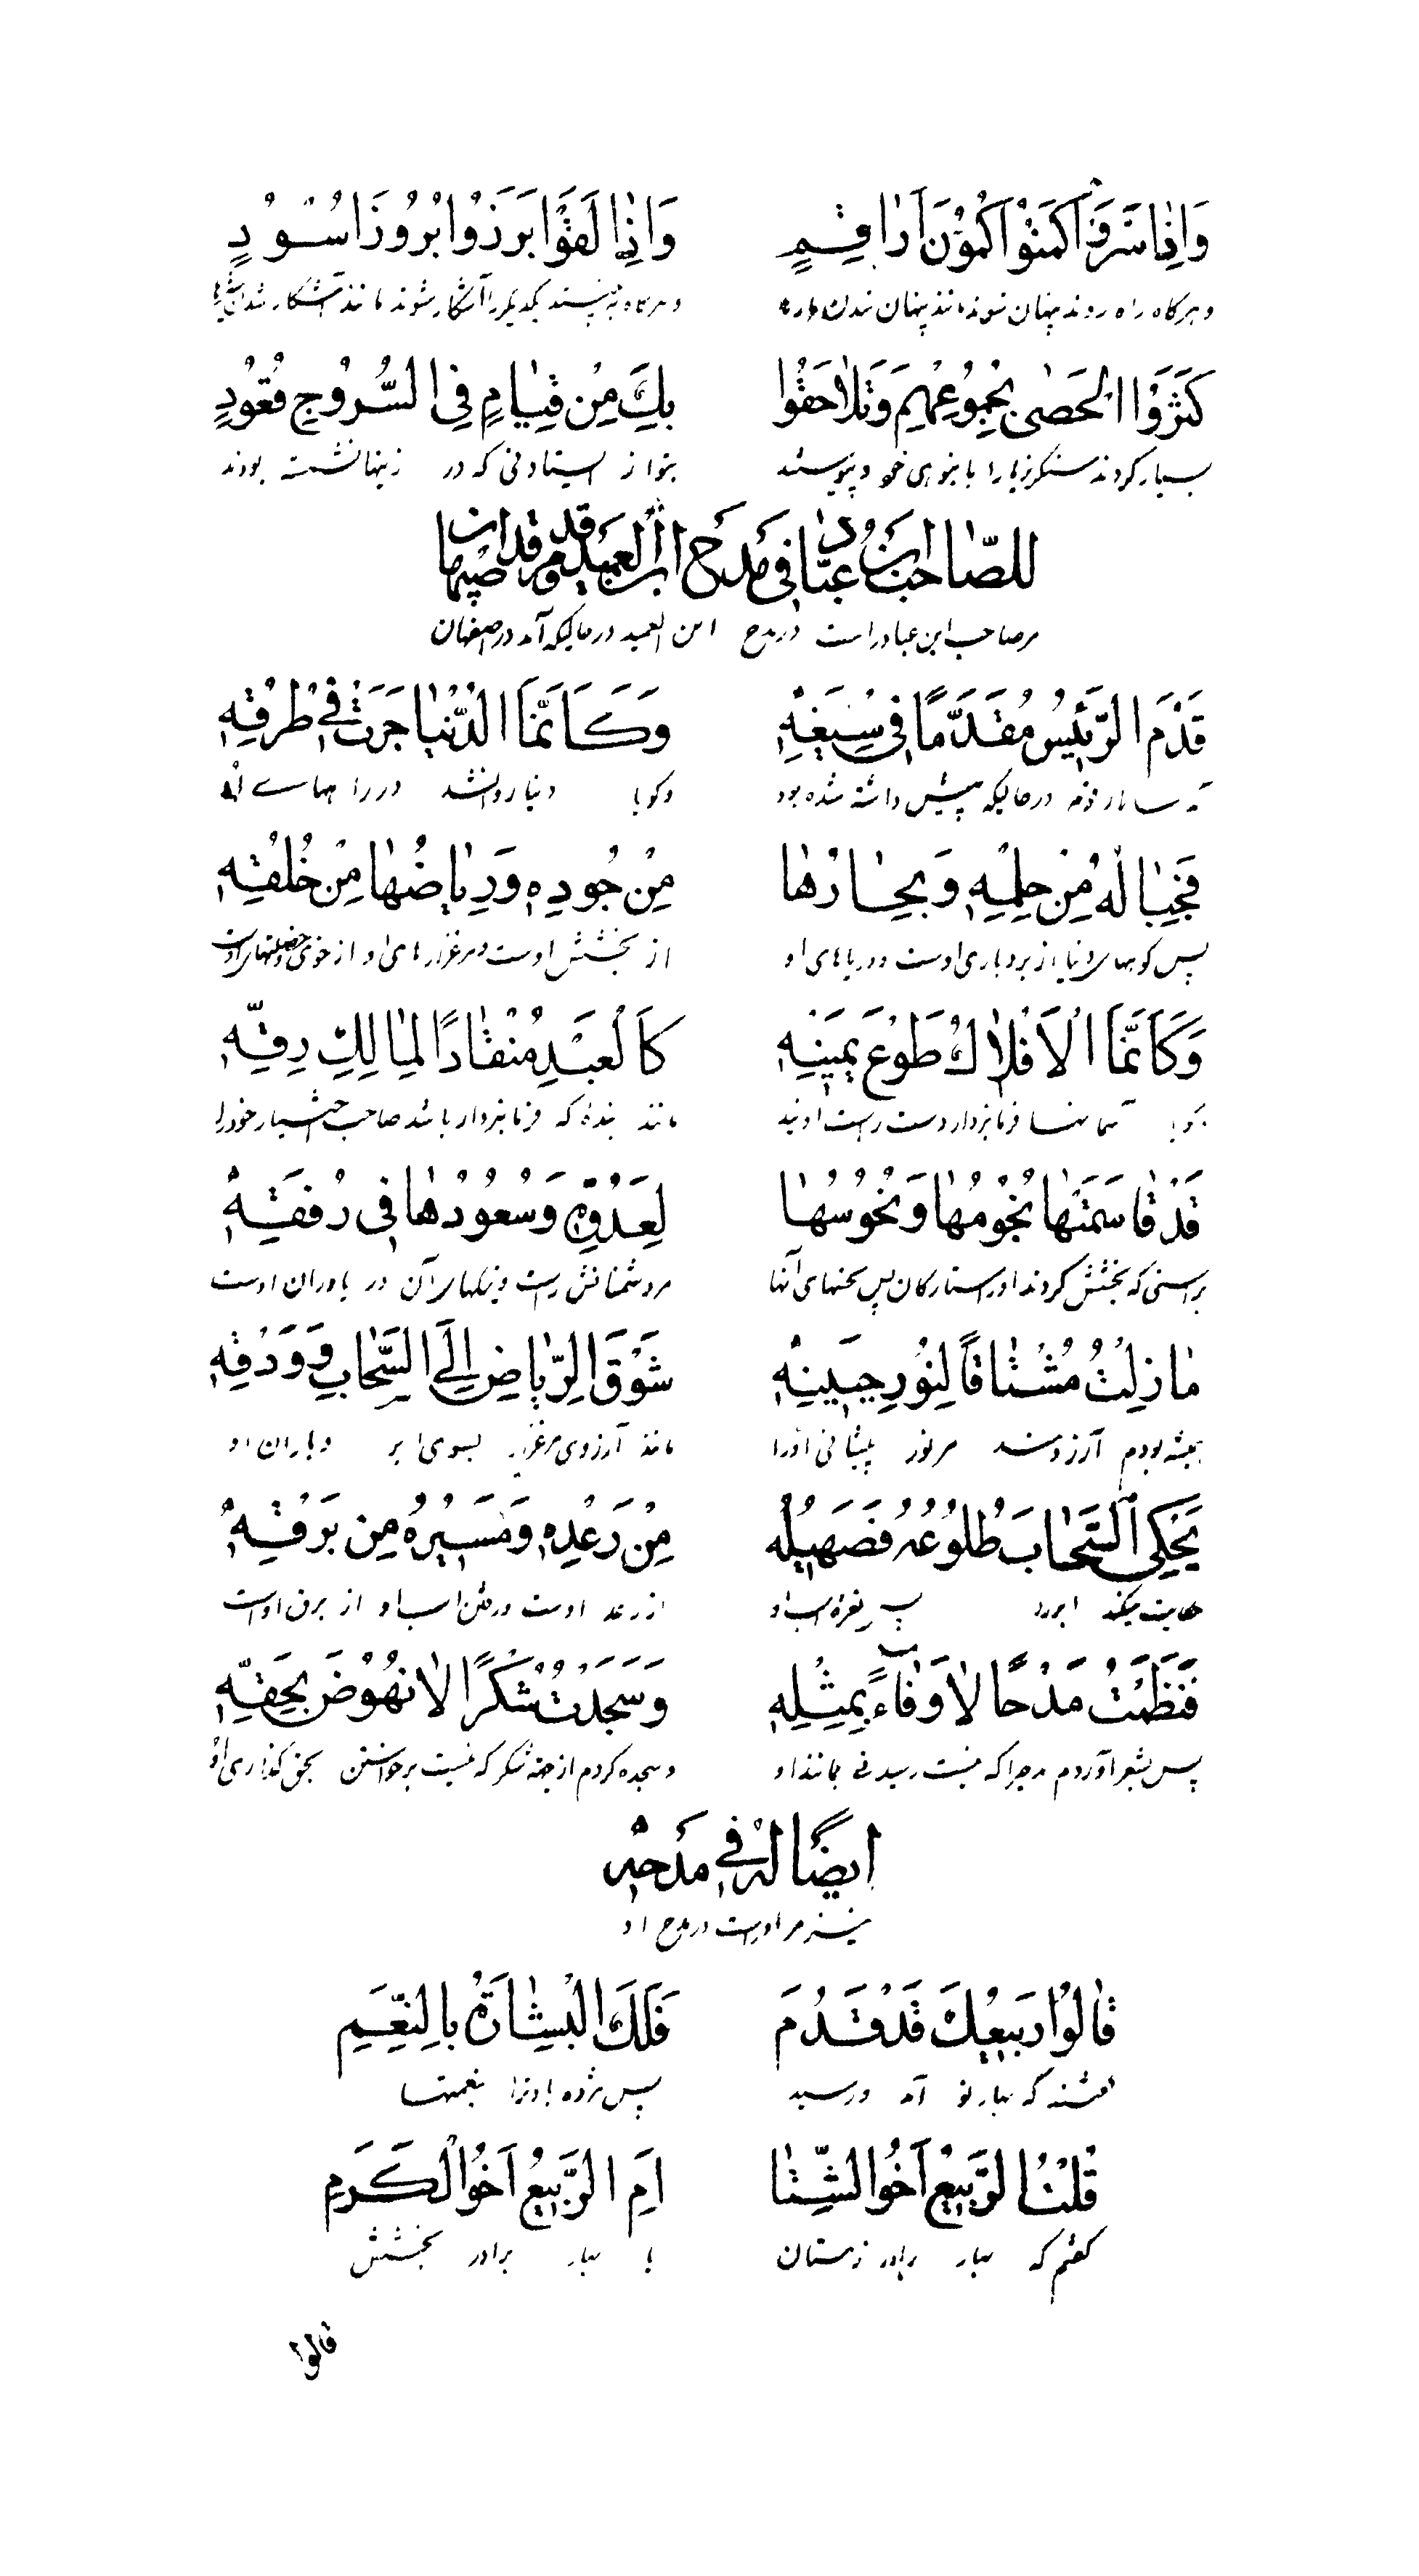 وَاِذٰا سَرَوْا كَمَنُوْا كُمُوْنَ اَرٰاقِمٍ وَاِذٰا لَقَوْا بَرَزُوا بُرُوزَ اُسُوْدٍ
و هرگاه راه روند پنهان شوند مانند پنهان شدن و هرگاه به بینند یکدیگر را آشکار شوند مانند آشکار شدن
كَثَرَوُا الْحَصٰى بِجُمُوعِهِمْ وَتَلاٰحَقُوا بِكَ مِنْ قِيٰامٍ فِى السُّرُوْجِ قُعُوْدٍ
بسیار کردند سنگریزها را با نبوهی خود و پیوستند بتو از ایستادنی که در زینها نشسته بودند
للصّاحب ابن عبّاد فى مدح ابن العميد قد قدم اصبهان
مر صاحب ابن عباد راست در مدح ابن العمید در حالیکه آمد در اصفهان
قَدْمَ الرَّئيِسُ مُقَدَّمًا فى سَبْقِهِ وَكَاَنَّمَا الدُّنْيٰا جَرَتْ فِى طُرْقِهِ
در حالیکه پیش داشته شده بود و گویا دنیا روانشد در راههای
فَجِبٰالُهُ مِنْ حِلْمِهِ وَ بِحٰارُهٰا مِنْ جُودِهِ وَرِيٰاضُهٰا مِنْ خُلْقِهِ
پس کوههای دنیا از بردباری اوست و دریاهای او از بخشش اوست و مرغزارهای او از خوی
وَكَاَنَّمَا الْاَفْلاٰكُ طَوْعَ يَمينِهِ كَالْعَبْدِ مُنْقٰادًا لِمٰالِكِ رِقِّهِ
گویا آسمانها فرمانبردار دست راست اویند مانند بنده که فرمانبردار باشد صاحب اختیار خود را
قَدْ قٰاسَمَتْهٰا نُجُوْمُهٰا وَنُحُوسُهٰا لِعَدُوِّهِ وَسُعُوْدُهٰا فى رُفْقَتِهِ
براستی که بخشش کردند او را ستارگان پس نحسهای آنها مر دشمنانش راست و نیکهای آن در یاوران اوست
مٰا زِلْتُ مُشْتٰاقًا لِنُوْرِ جَبينِهِ شَوْقَ الرِّيٰاضِ اِلَى السَّحٰابِ وَ وَدْقِهِ
همیشه بودم آرزومند مر نور پیشانی او را مانند آرزوی مرغزار بسوی ابر و باران او
يَحْكِى السَّحٰابَ طُلُوْعُهُ فَصَهيلُهُ مِنْ رَعْدِهِ وَمَسيرُهُ مِنْ بَرْقِهِ
حکایت میکند ابر را پس نعره اسب او از رعد اوست و رفتن اسب او از برق اوست
فَنَظَمْتُ مَدْحًا لاٰ وَفٰاءً بِمِثْلِهِ وَسَجَدْتُ شُكْرًا لاٰ نُهُوْضَ بِحَقِّهِ
پس بشعر آوردم مدحرا که نیست رسیدنی بمانند او و سجده کردم از جهة شکر که نیست برخواستن بحق گذاری او
ايضًا له فى مدحه
نیز مر اوراست در مدح او
قٰالُوْا رَبيعُكَ قَدْ قَدُمَ فَلَكَ الْبِشٰارَةُ بِالنِّعَمِ
گفتند که بهار تو آمد و رسید پس مژده باد ترا بنعمتها
قُلْتُ الرَّبيعُ اَخُو الشِّتٰا اَمِ الرَّبيعُ اَخُو الْكَرَمِ
گفتم که بهار برادر زمستان یا بهار برادر بخشش
قالوا